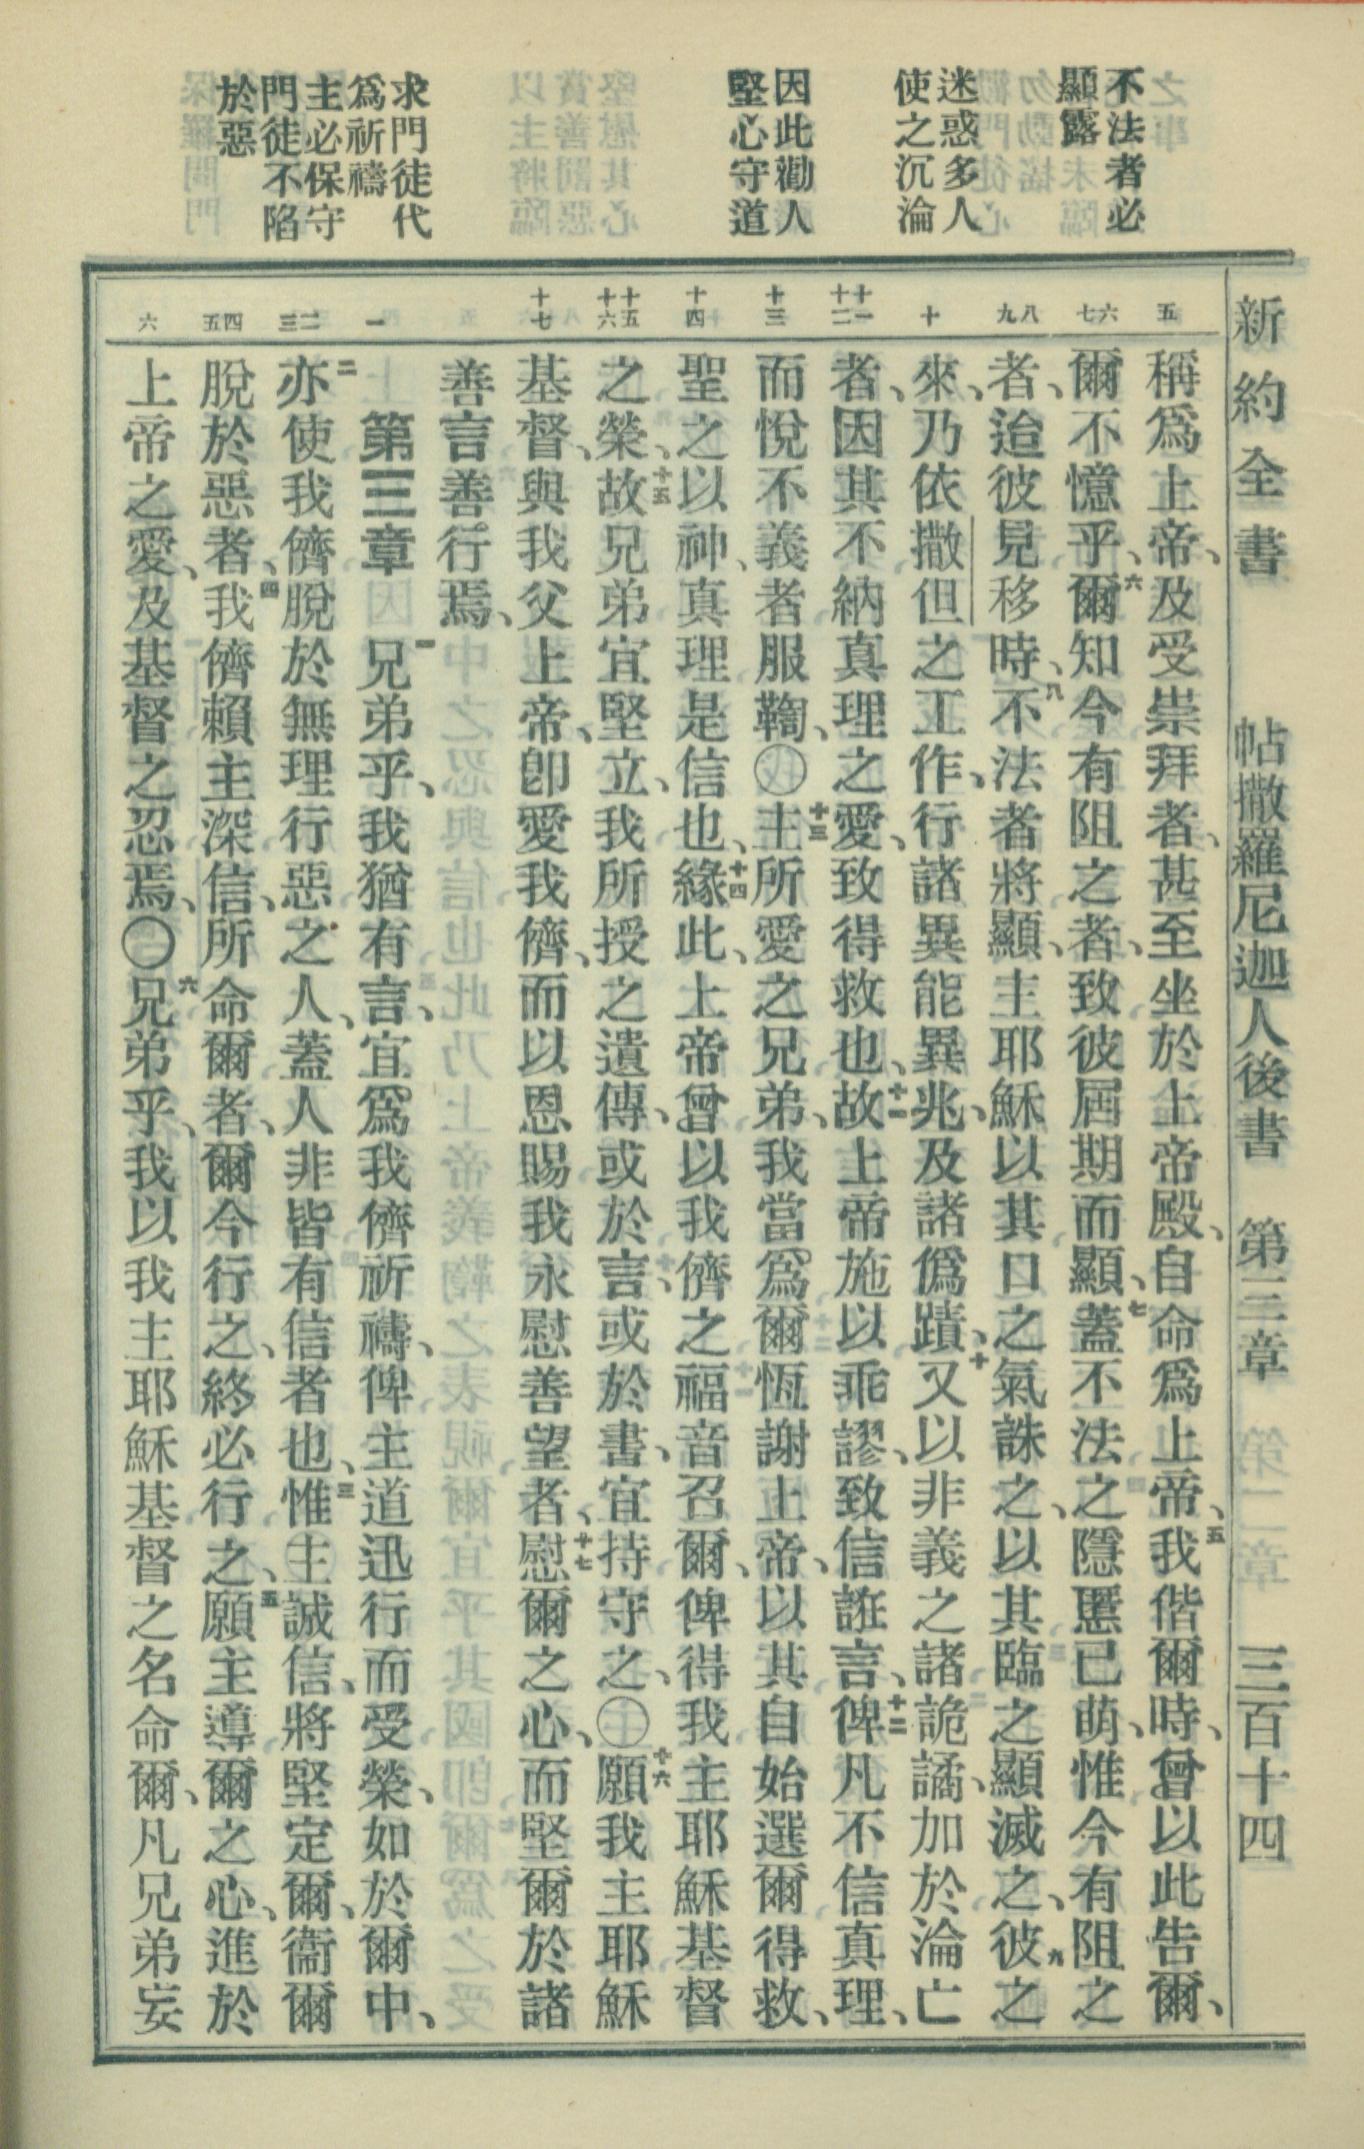 新約全書 帖撒羅尼迦人後書 第三章 三百十四
不法者必
顯露
迷惑多人
使之沉淪
因此勸人
堅心守道
求門徒代
爲祈禱
主必保守
門徒不陷
於惡
五
六七
八九
十
十一十二
十三
十四
十五十六
十七
一
二三
四五
六
稱爲上帝、及受崇拜者、甚至坐於上帝殿、自命爲上帝、五我偕爾時、曾以此告爾、
爾不憶乎、六爾知今有阻之者、致彼屆期而顯、七蓋不法之隱慝已萌、惟今有阻之
者、迨彼見移時、八不法者將顯、主耶穌以其口之氣誅之、以其臨之顯滅之、九彼之
來、乃依撒但之工作、行諸異能異兆、及諸僞蹟、十又以非義之諸詭譎、加於淪亡
者、因其不納真理之愛、致得救也、十一故上帝施以乖謬、致信誑言、十二俾凡不信真理、
而悅不義者服鞫、〇十三主所愛之兄弟、我當爲爾恆謝上帝、以其自始選爾得救、
聖之以神、真理是信也、十四緣此、上帝曾以我儕之福音召爾、俾得我主耶穌基督
之榮、十五故兄弟宜堅立、我所授之遺傳、或於言、或於書、宜持守之、〇十六願我主耶穌
基督、與我父上帝、卽愛我儕、而以恩賜我永慰善望者、十七慰爾之心、而堅爾於諸
善言善行焉、
第三章 一兄弟乎、我猶有言、宜爲我儕祈禱、俾主道迅行而受榮、如於爾中、
二亦使我儕脫於無理行惡之人、蓋人非皆有信者也、三惟主誠信、將堅定爾、衞爾
脫於惡者、四我儕賴主深信、所命爾者、爾今行之、終必行之、五願主導爾之心、進於
上帝之愛、及基督之忍焉、〇六兄弟乎、我以我主耶穌基督之名命爾、凡兄弟妄